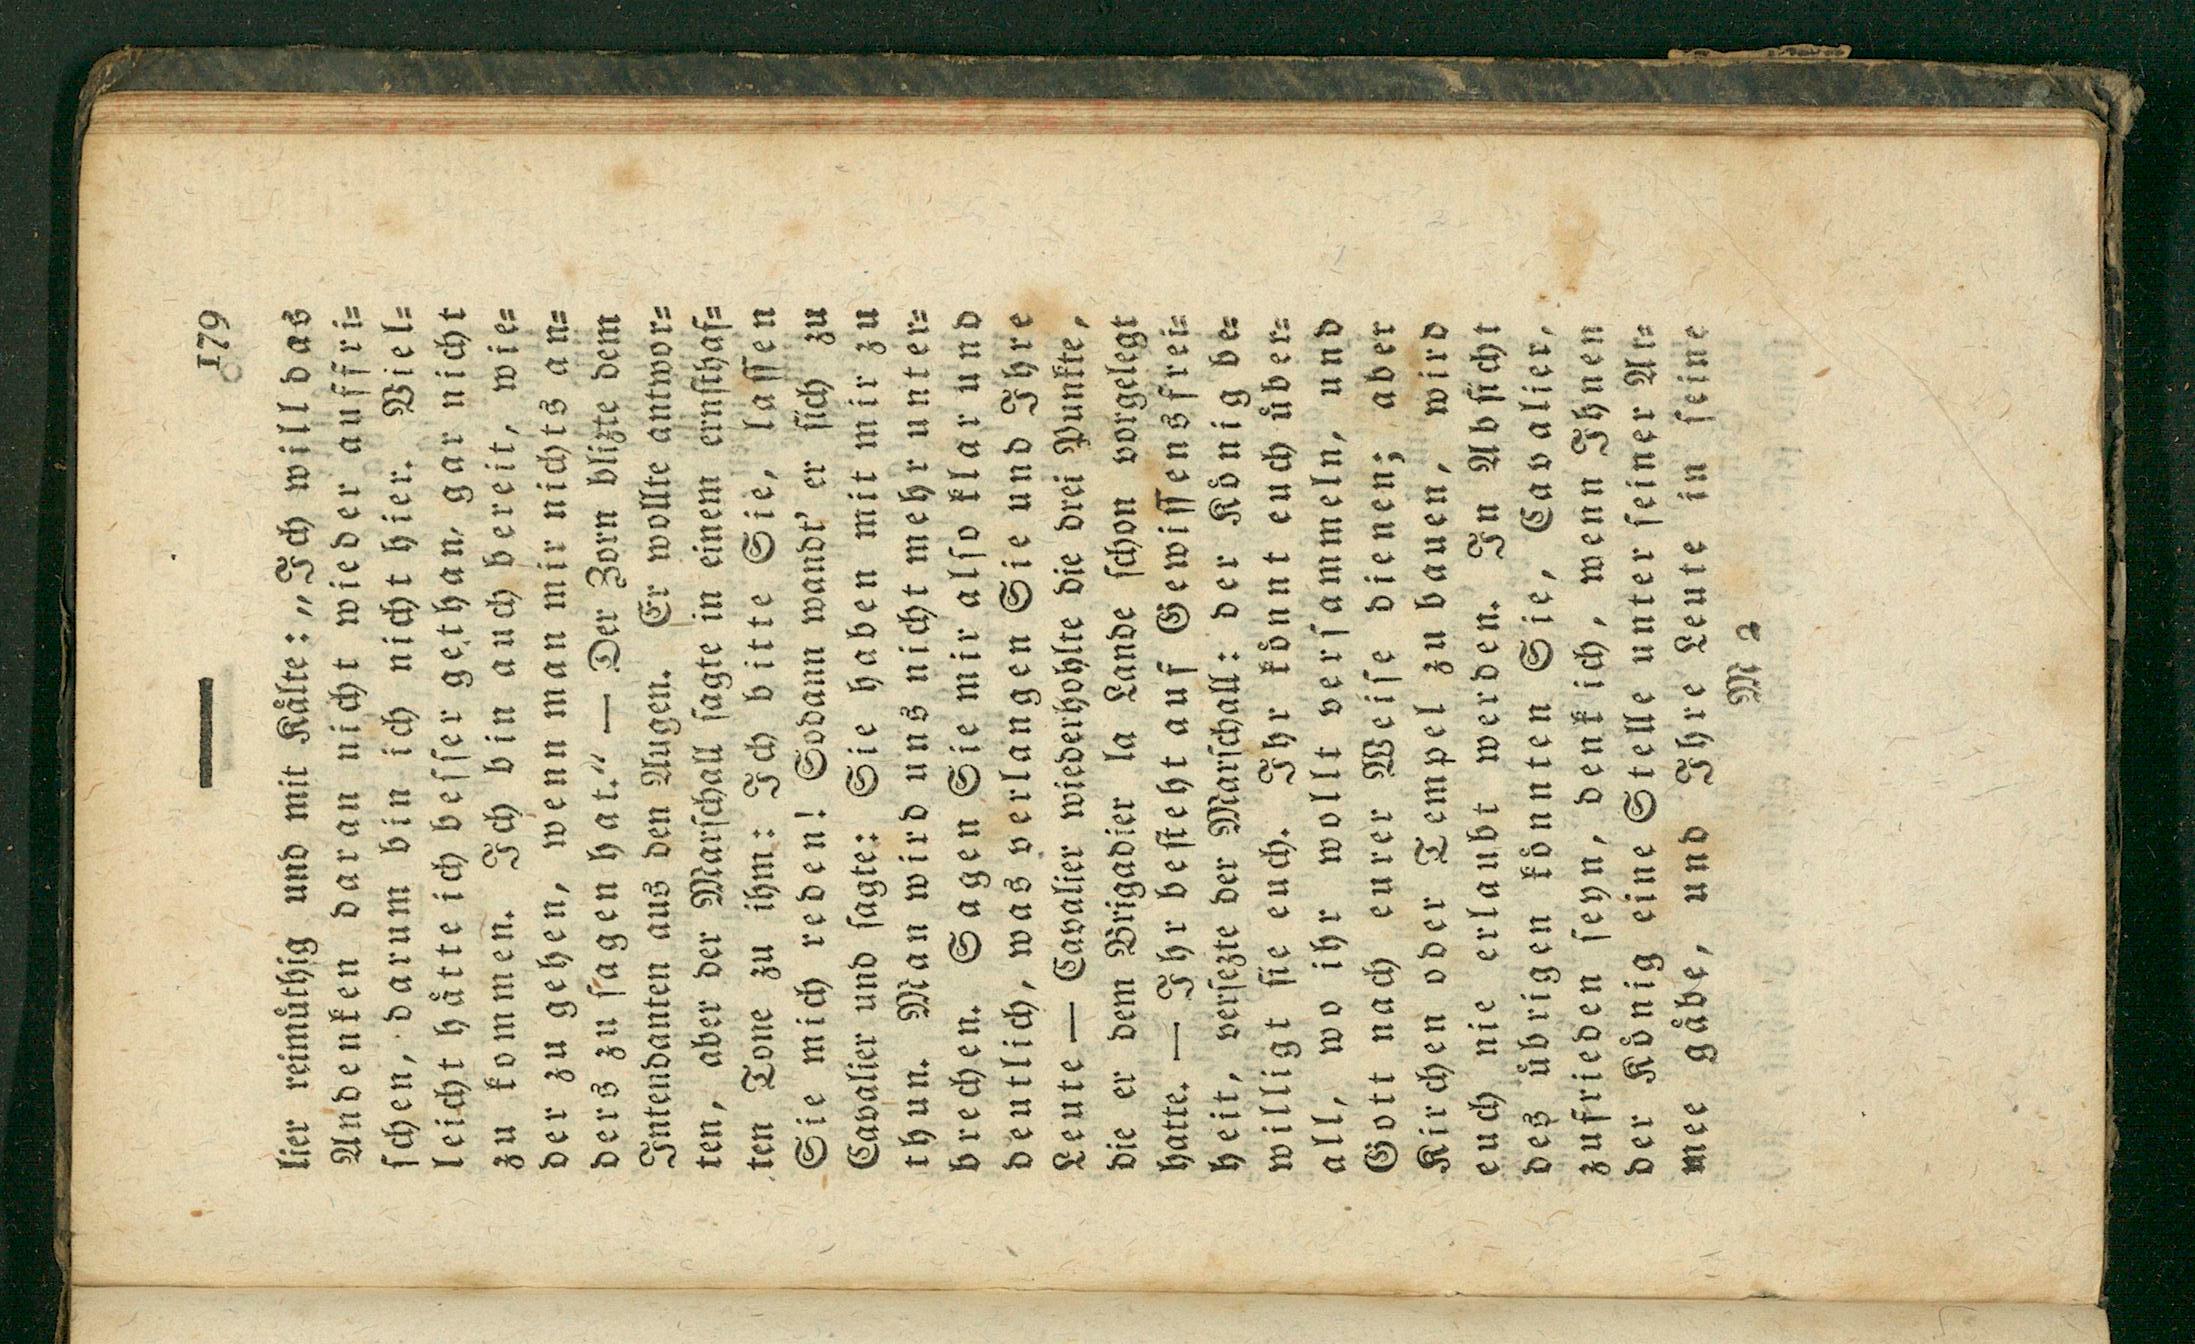 — 179
lier reimůthig und mit Kålte: „Ich will das
Andenken daran nicht wieder auffri⸗
ſchen, darum bin ich nicht hier. Viel⸗
leicht håtte ich beſſer gethan, gar nicht
zu kommen. Ich bin auch bereit, wie⸗
der zu gehen, wenn man mir nichts an⸗
ders zu ſagen hat.“ — Der Zorn blizte dem
Intendanten aus den Augen. Er wollte antwor⸗
ten, aber der Marſchall ſagte in einem ernſthaf⸗
ten Tone zu ihm: Ich bitte Sie, laſſen
Sie mich reden! Sodann wandt' er ſich zu
Cavalier und ſagte: Sie haben mit mir zu
thun. Man wird uns nicht mehr unter⸗
brechen. Sagen Sie mir alſo klar und
deutlich, was verlangen Sie und Ihre
Leute — Cavalier wiederhohlte die drei Punkte,
die er dem Brigadier la Lande ſchon vorgelegt
hatte. — Ihr beſteht auf Gewiſſensfrei⸗
heit, verſezte der Marſchall: der König be⸗
willigt ſie euch. Ihr kőnnt euch ůber⸗
all, wo ihr wollt verſammeln, und
Gott nach eurer Weiſe dienen; aber
Kirchen oder Tempel zu bauen, wird
euch nie erlaubt werden. In Abſicht
deß ůbrigen kőnnten Sie, Cavalier,
zufrieden ſeyn, denk ich, wenn Ihnen
der König eine Stelle unter ſeiner Ar⸗
mee gåbe, und Ihre Leute in ſeine
M 2